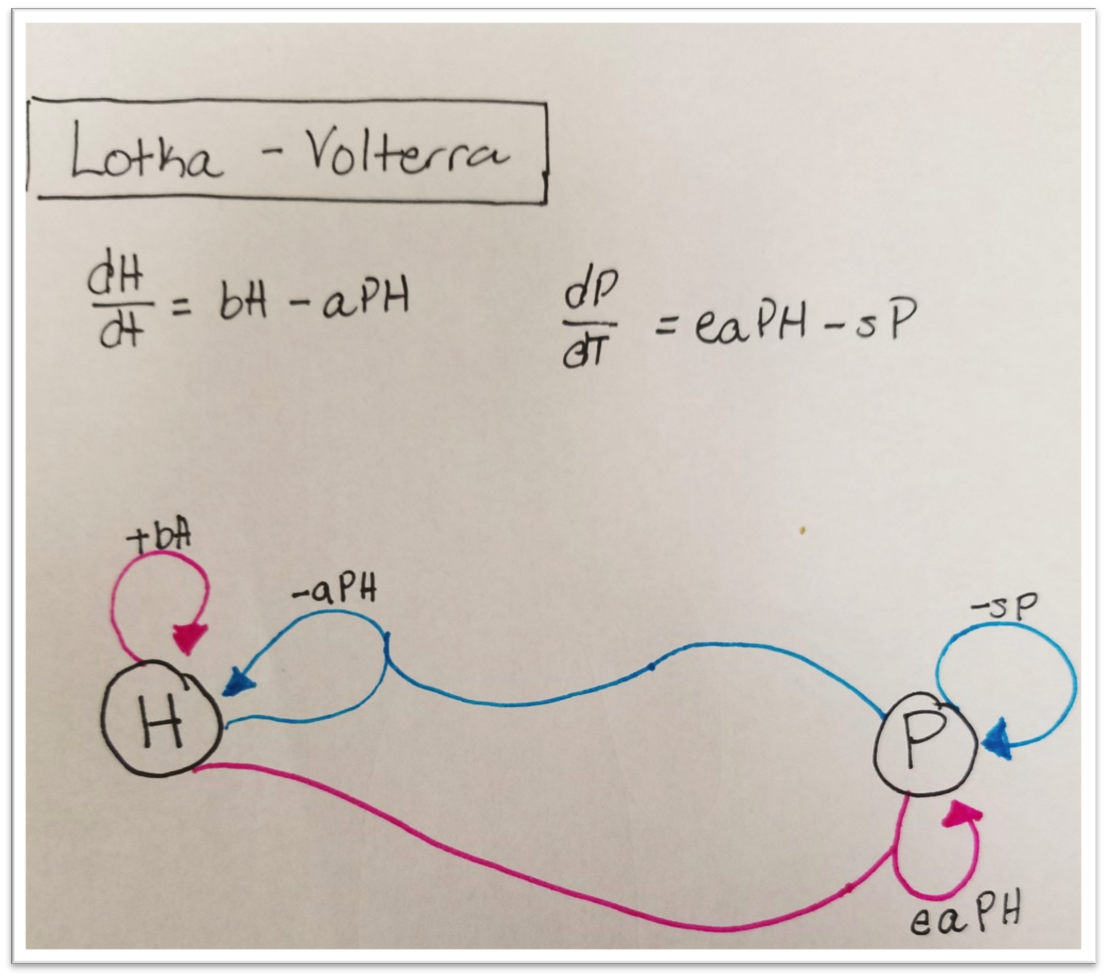 Lotka - Volterra
dH/dt = bH - aPH
dP/dT = eaPH - sP
+bH
-aPH
-sP
H
P
eaPH